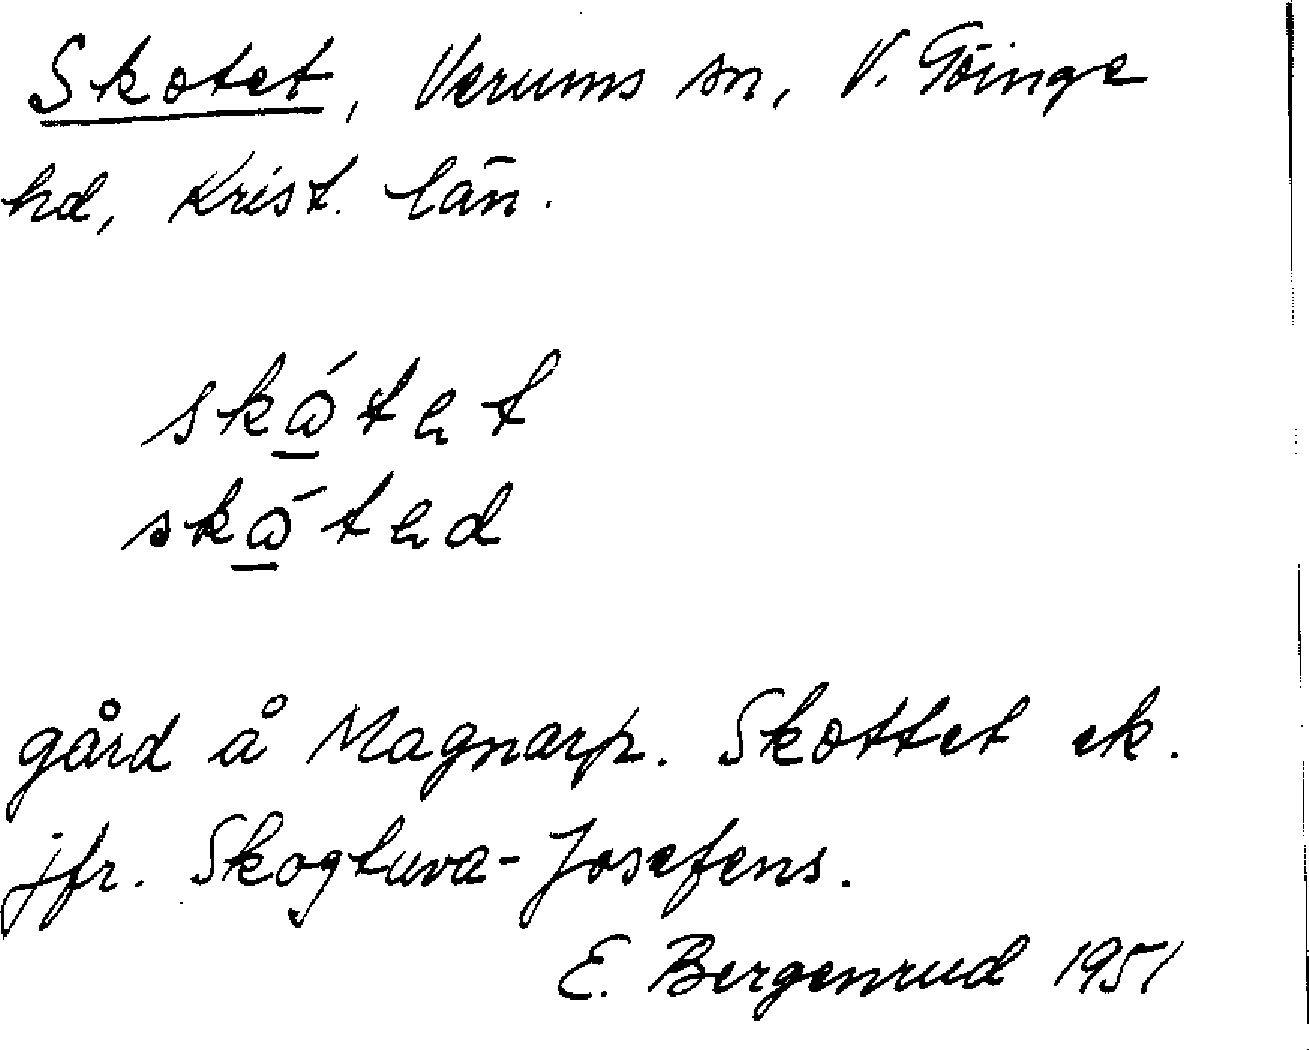 Skotet, Verums sn, V. Göinge
hd, Krist. län.
skώ̱tet
skώ̱ted
gård å Magnarp. Skottet ek.
jfr. Skogtuva-Josefens.
E. Bergenrud 1951